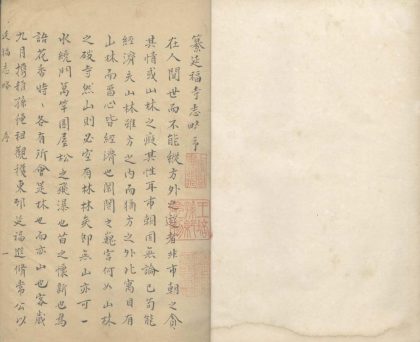 纂延福寺志略序
在人間世而不能縱方外之遊者非市朝之貪
其情或山林之癖其性耳市朝固無論已苟能
經濟夫山林雖方之內而猶方之外也寓目有
山林而當心皆經濟也闤闠之巍宫何如山林
之破寺然山則必空有林林矣即無山亦可一
水繞門萬竿圍屋松之飛瀑也苗之懷新也鳥
語花香時各有所會是林也而亦山也客歲
九月攜雅孫憧祖觀穫東邨延福遊脩常公以
延福志略 序 一